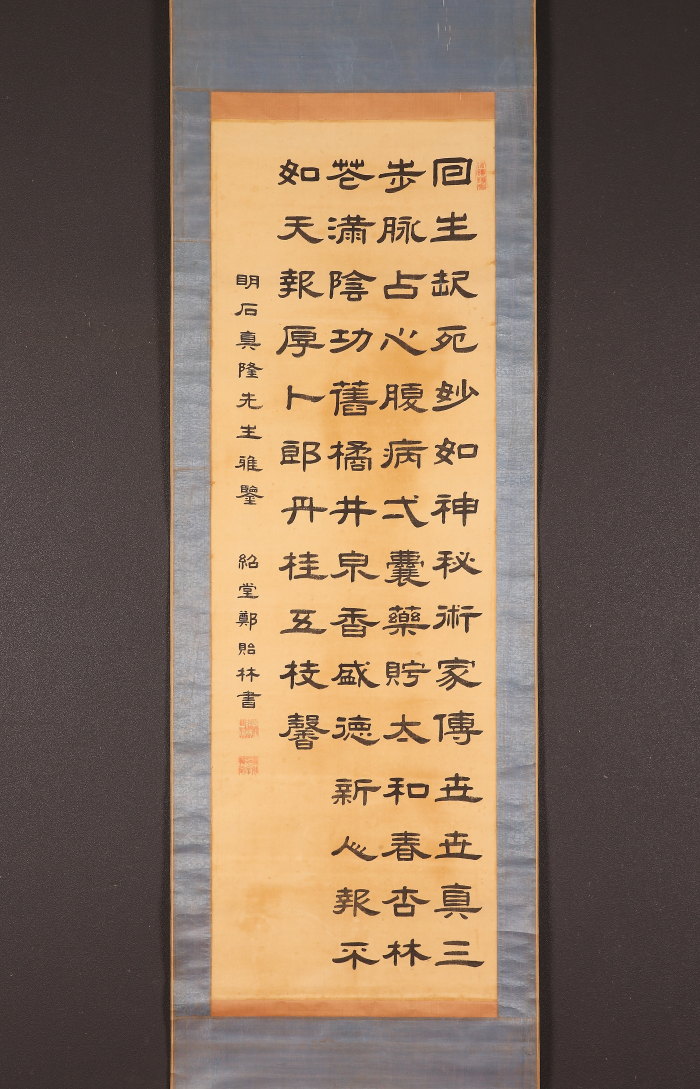 回生起死妙如神秘術家傳世世真三
步脉占心腹病弍囊藥貯太和春杏林
花滿陰功舊橘井泉香盛德新人報不
如天報厚卜郎丹桂五枝馨
明石真隆先生雅鑒 紹堂鄭貽林書